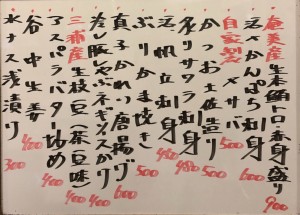 奄美産生本鮪トロ赤身盛り 900
活〆かんぱち刺身 600
自家製〆サバ 500
かつお土佐造り 500
炙りサワラ刺身 480
活帆立刺身 450
ぶりかま焼き 500
真子かれい唐揚げ 600
差し豚しゃぶネギポスがけ 400
三浦産生枝豆(茶豆味) 400
アスパラバター炒め 400
谷中生姜 400
水ナス浅漬け 300